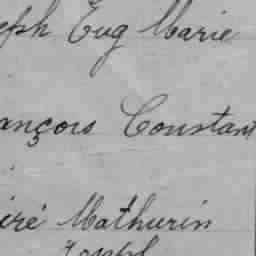 eph Eug Marie
ançois Constant
iré Mathurin
Joseph